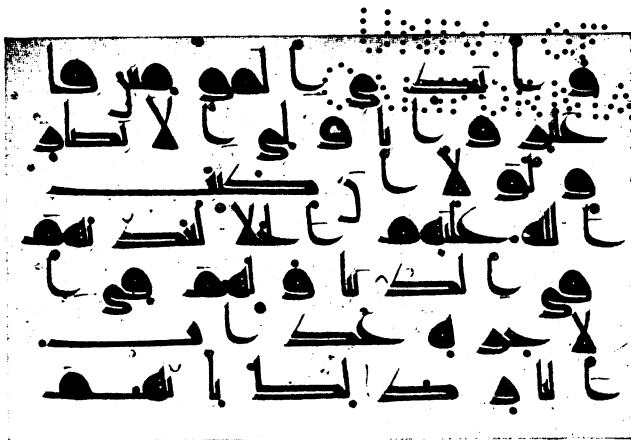 و ايدى المومنين فا
عتبروا ياولى الابصر
و لولا ان كتب
الله عليهم الجلا لعذبهم
فى الدنيا و لهم فى ا
لاخرة عذاب
النار ذلك بانهم